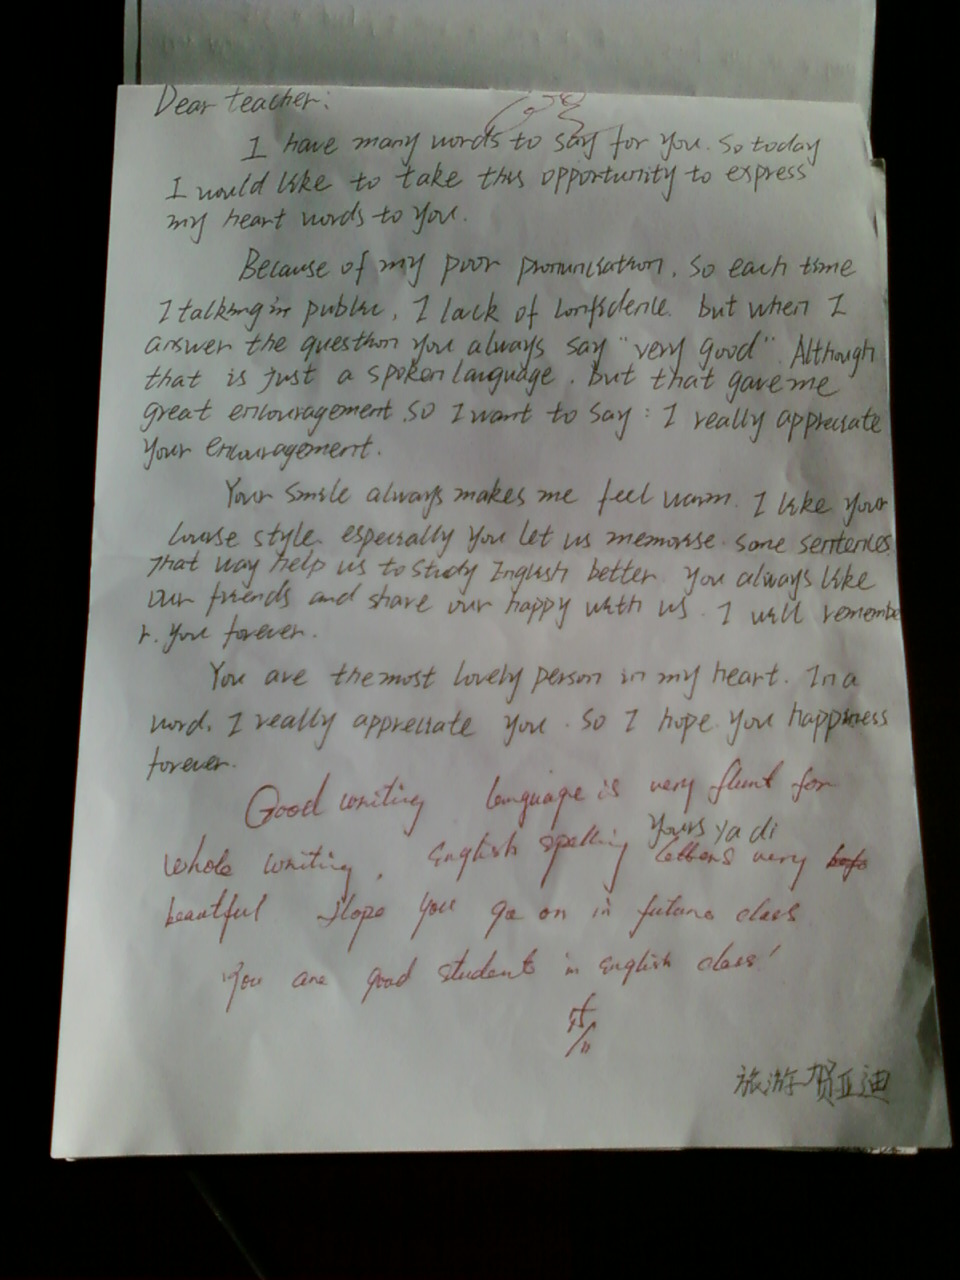 Dear teacher:
I have many words to say for you. So today
I would like to take this opportunity to express
my heart words to you.
Because of my poor pronunciation, so each time
I talking in public, I lack of confidence. but when I
answer the question you always say "very good". Although
that is just a spoken language. but that gave me
great encouragement. so I want to say: I really appreciate
your encouragement.
Your smile always makes me feel warm. I like your
course style. especially you let us memorise some sentences
that way help us to study English better. you always like
our friends and share our happy with us. I will remembe
r. you forever.
You are the most lovely person in my heart. In a
word, I really appreciate you. So I hope you happiness
forever.
Good writing language is very flunt for
Yours ya di
whole writing, English spelling letters very
beautful Hope you go on in future class
You are good student in English class!
旅游 贺亚迪